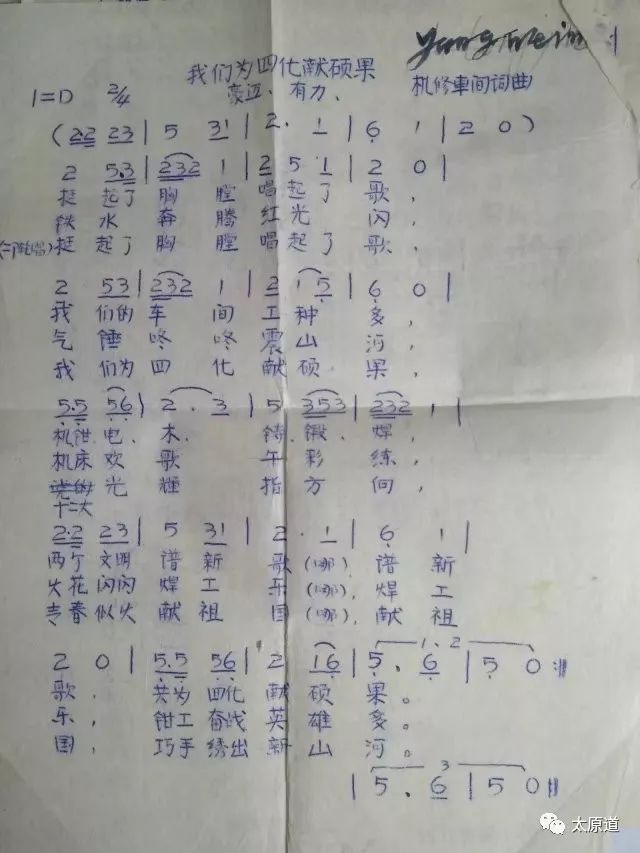 我们为四化献硕果
1=D 2/4 豪迈、有力、 机修車间词曲
(22 23 | 5 31 | 2. 1 | 6 1 | 2 0)
2 5.3 | 232 1 | 2 5 1 | 2 0 |
挺 起了 胸 膛 唱 起 了 歌,
铁 水 奔 腾 红 光 闪,
挺 起了 胸 膛 唱 起 了 歌,
2 53 | 232 1 | 2 1 5 | 6 0 |
我 们的 车 间 工 种 多,
气 锤 咚 咚 震 山 河,
我 们为 四 化 献 硕 果,
5.5 56 | 2 . 3 | 5 353 | 232 1 |
机钳 电、木、 铸、锻、焊,
机床 欢 歌 午 彩 练,
光 輝 指 方 向,
十二大
2.2 23 | 5 31 | 2 . 1 | 6 1 |
两个 文明 谱 新 歌(哪), 谱 新
火花 闪闪 焊 工 乐(哪), 焊 工
青春 似火 献 祖 国(哪), 献 祖
2 0 | 5.5 56 | 2 16 | 5 . 6 | 5 0 :||
1、2
歌, 共为 四化 献 硕 果。
乐, 钳工 奋战 英 雄 多。
国, 巧手 绣出 新 山 河。
3
| 5 . 6 | 5 0 ||
太原道